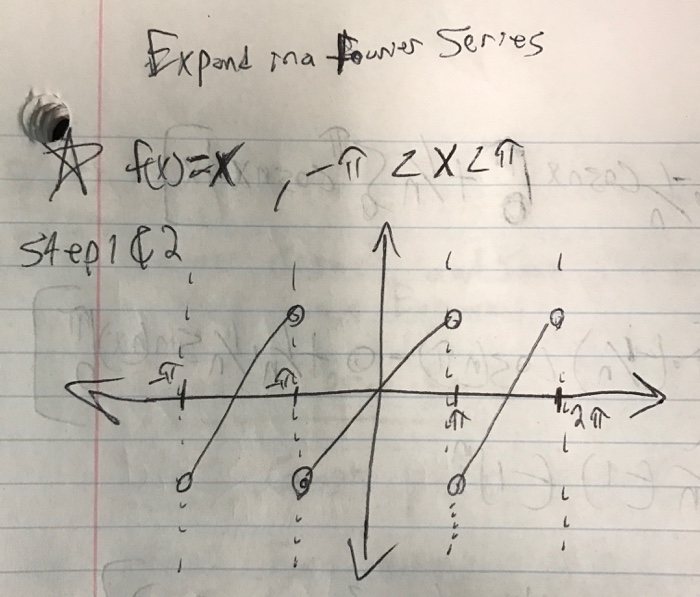 Expand in a Fourier Series
f(x)=x , -π < x < π
Step 1 & 2
-π -π π 2π